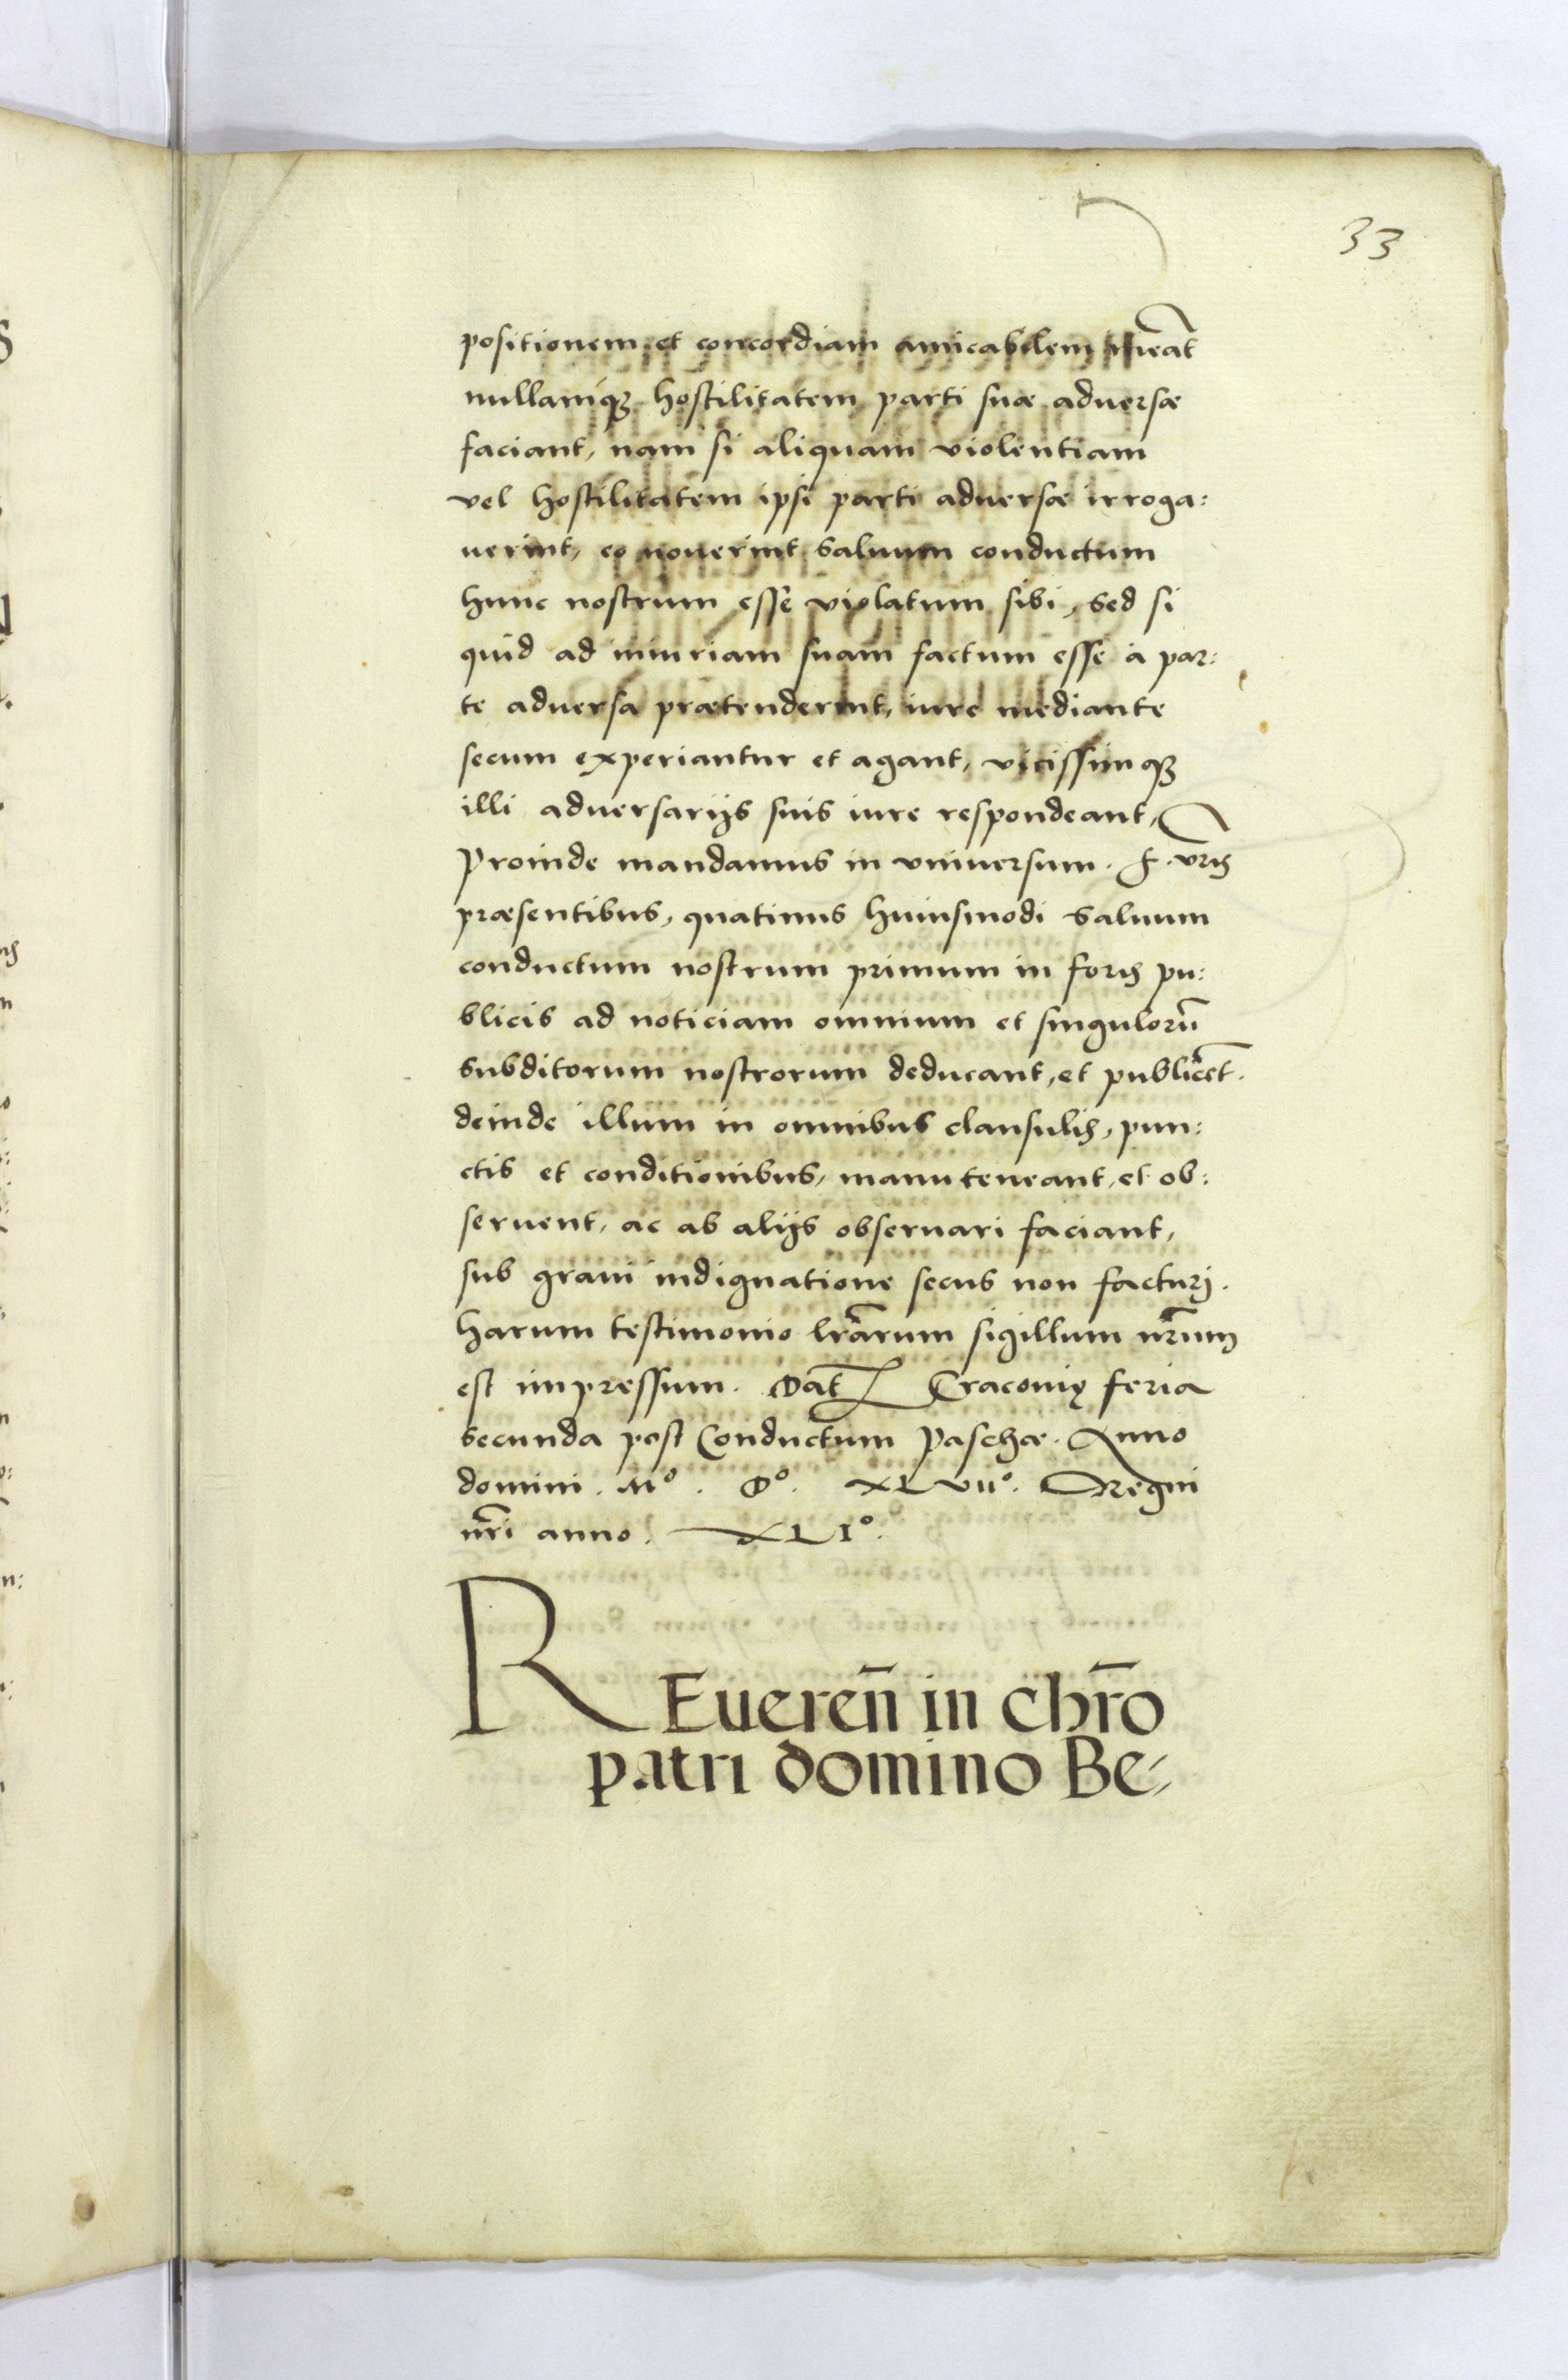 33
positionem et concordiam amicabilem ineāt
nullamq3 hostilitatem parti suæ aduersæ
faciant, nam si aliquam violentiam
vel hostilitatem ipsi parti aduersæ irroga:
uerint, eo nouerint saluum conductum
hunc nostrum esse violatum sibi, sed si
quid ad iniuriam suam factum esse a par:
te aduersa prætenderint, iure mediante
secum experiantur et agant, vicissimq3
illi aduersarijs suis iure respondeant,
Proinde mandamus in vniuersum. f. vr̄is
præsentibus, quatinus huiusmodi saluum
conductum nostrum primum in foris pu:
blicis ad noticiam omnium et singulorū
subditorum nostrorum deducant, et publicēt.
deinde illum in omnibus clausulis, pun:
ctis et conditionibus, manuteneant, et ob:
seruent, ac ab alijs obseruari faciant,
sub graui indignatione secus non facturi.
harum testimonio lr̄arum sigillum nr̄um
est impressum. Dat̄ Cracouię feria
secunda post Conductum Paschæ. Anno
domini. Mº. Dº. XLVIIº. Regni
nr̄i anno. XLIº.
REueren̄ in chr̄o
patri domino Be⸗